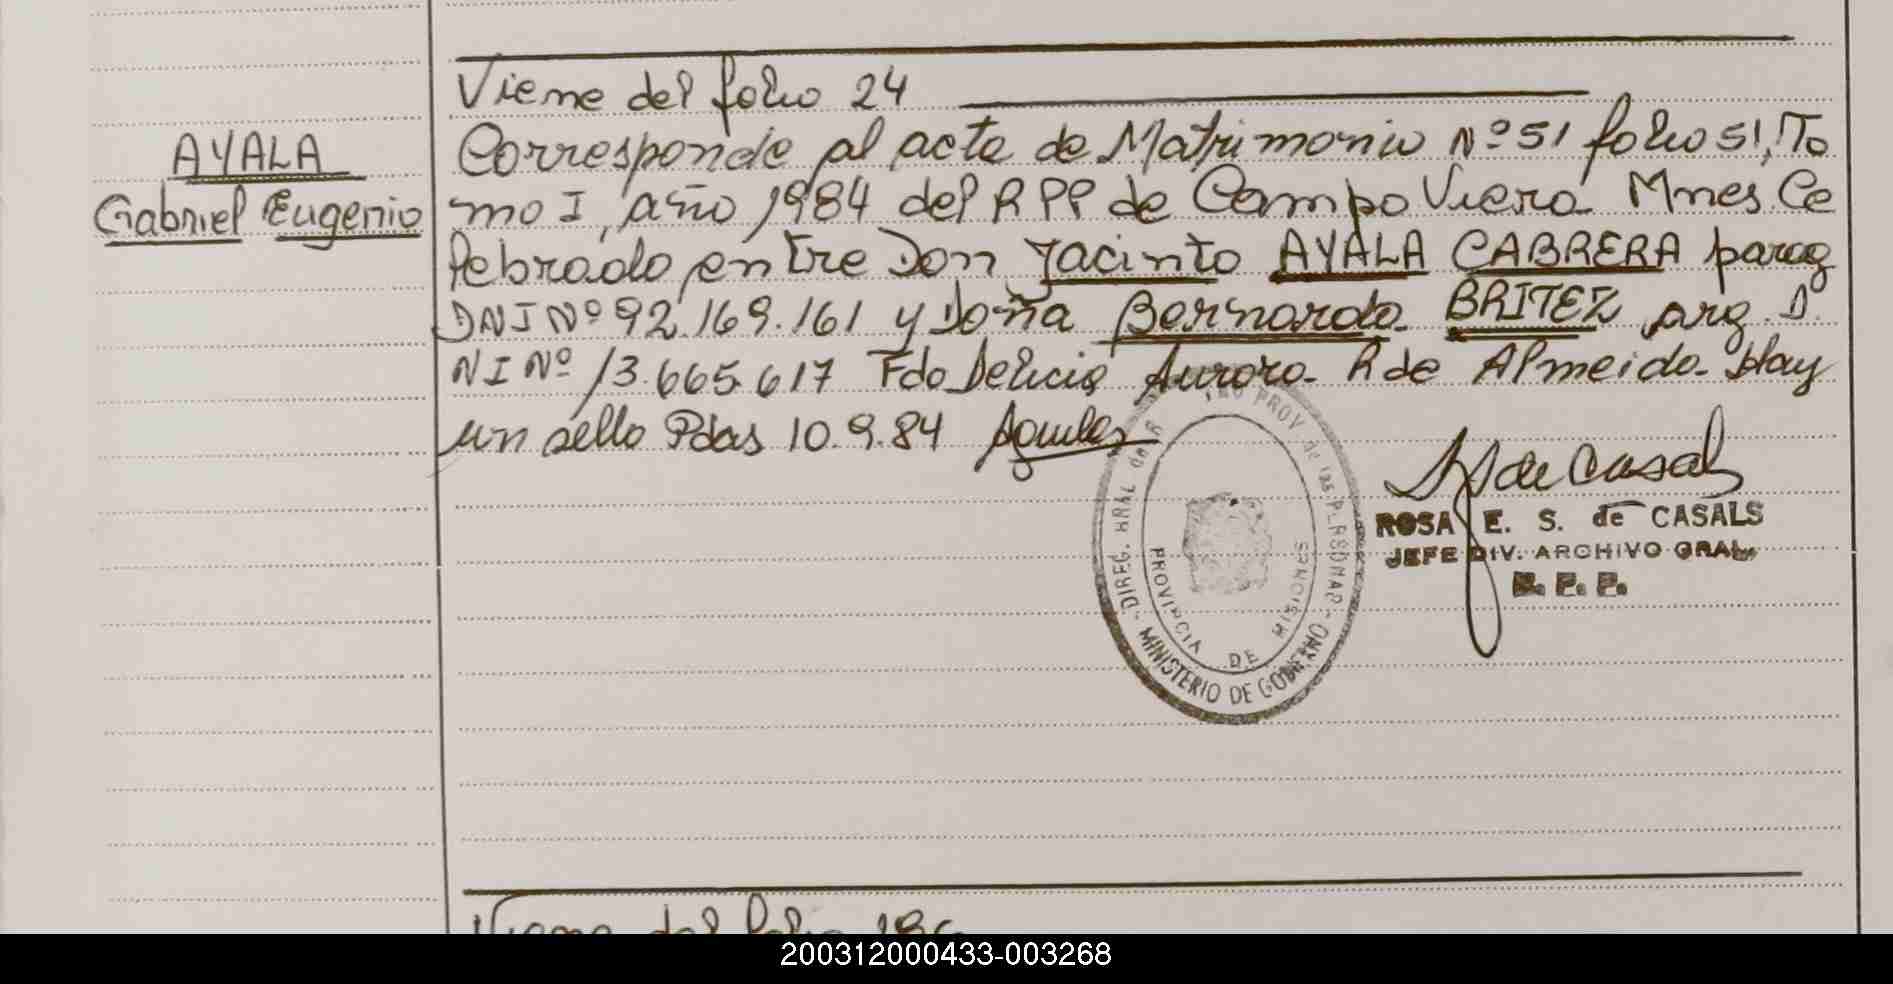 Viene del folio 24
AYALA
Gabriel Eugenio
Corresponde al acta de Matrimonio Nº 51 folio 51, To
mo I, año 1984 del RPP de Campo Viera Mnes. Ce
lebrado entre Don Jacinto AYALA CABRERA parag
DNI Nº 92.169.161 y Doña Bernarda BRITEZ arg. D.
NI Nº 13.665.617 Fdo Delicia Aurora R de Almeida. Hay
un sello Pdas 10.9.84
de Casals
ROSA E. S. de CASALS
JEFE DIV. ARCHIVO GRAL.
R. P. P.
DIREC. GRAL de PROV de las PERSONAS
MINISTERIO DE GOBIERNO
PROVINCIA DE MISIONES
Viene del folio
200312000433-003268